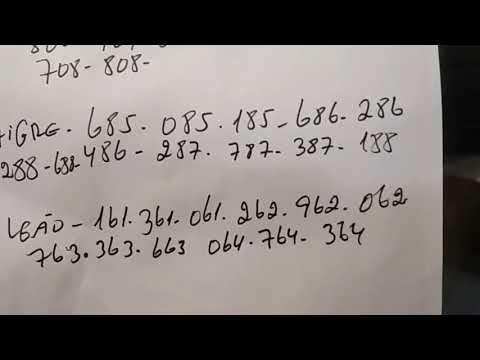 708- 808-
TIGRE - 685. 085. 185- 686- 286
288-688-486 - 287. 787- 387- 188
LEÃO - 161. 361. 061. 262. 962. 062
763. 363. 663 064. 764- 364